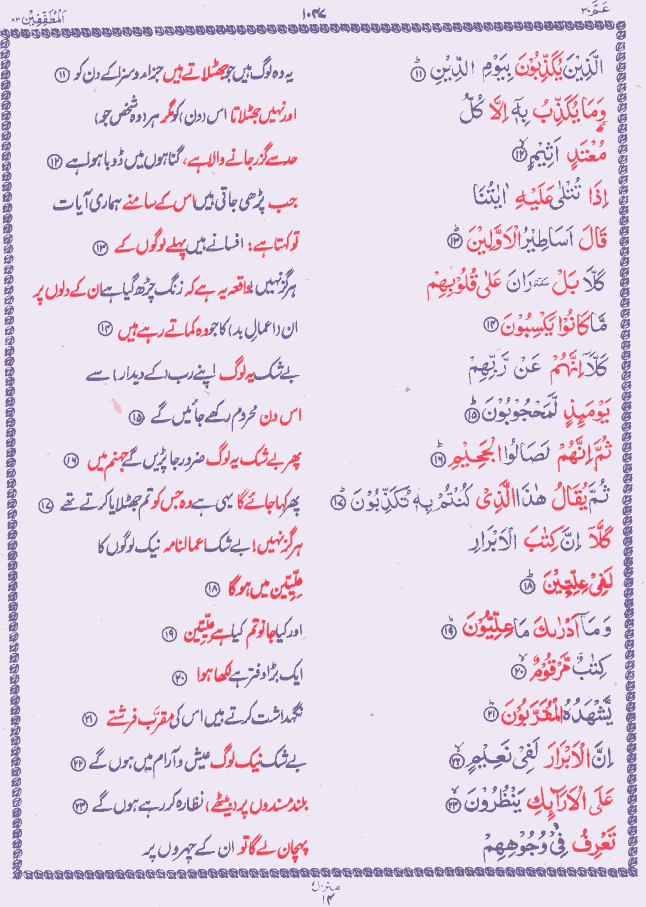 عَمَّ ٣٠
١٠٤٧
اَلْمُطَفِّفِيْن ٨٣
الَّذِيْنَ يُكَذِّبُوْنَ بِيَوْمِ الدِّيْنِ ؕ﴿۱۱﴾ یہ وہ لوگ ہیں جو جھٹلاتے ہیں جزاء وسزا کے دن کو ﴿۱۱﴾
وَمَا يُكَذِّبُ بِهٖۤ اِلَّا كُلُّ اور نہیں جھٹلاتا اس (دن) کو مگر ہر (وہ شخص جو)
مُعْتَدٍ اَثِيْمٍ ۙ﴿۱۲﴾ حد سے گزر جانے والا ہے، گناہوں میں ڈوبا ہوا ہے ﴿۱۲﴾
اِذَا تُتْلٰى عَلَيْهِ اٰيٰتُنَا جب پڑھی جاتی ہیں اس کے سامنے ہماری آیات
قَالَ اَسَاطِيْرُ الْاَوَّلِيْنَ ؕ﴿۱۳﴾ تو کہتا ہے: افسانے ہیں پہلے لوگوں کے ﴿۱۳﴾
كَلَّا بَلْ ٚ رَانَ عَلٰى قُلُوْبِهِمْ ہرگز نہیں بلکہ واقعہ یہ ہے کہ زنگ چڑھ گیا ہے ان کے دلوں پر
مَّا كَانُوْا يَكْسِبُوْنَ ﴿۱۴﴾ ان (اعمالِ بد) کا جو وہ کماتے رہے ہیں ﴿۱۴﴾
كَلَّاۤ اِنَّهُمْ عَنْ رَّبِّهِمْ بے شک یہ لوگ اپنے رب (کے دیدار) سے
يَوْمَىِٕذٍ لَّمَحْجُوْبُوْنَ ؕ﴿۱۵﴾ اس دن محروم رکھے جائیں گے ﴿۱۵﴾
ثُمَّ اِنَّهُمْ لَصَالُوا الْجَحِيْمِ ؕ﴿۱۶﴾ پھر بے شک یہ لوگ ضرور جا پڑیں گے جہنم میں ﴿۱۶﴾
ثُمَّ يُقَالُ هٰذَا الَّذِىْ كُنْتُمْ بِهٖ تُكَذِّبُوْنَ ؕ﴿۱۷﴾ پھر کہا جائے گا یہی ہے وہ جس کو تم جھٹلایا کرتے تھے ﴿۱۷﴾
كَلَّاۤ اِنَّ كِتٰبَ الْاَبْرَارِ ہرگز نہیں! بے شک اعمالنامہ نیک لوگوں کا
لَفِىْ عِلِّيِّيْنَ ؕ﴿۱۸﴾ عِلِّیِّین میں ہوگا ﴿۱۸﴾
وَمَاۤ اَدْرٰىكَ مَا عِلِّيُّوْنَ ؕ﴿۱۹﴾ اور کیا جانو تم کیا ہے عِلِّیِّین ﴿۱۹﴾
كِتٰبٌ مَّرْقُوْمٌ ۙ﴿۲۰﴾ ایک بڑا دفتر ہے لکھا ہوا ﴿۲۰﴾
يَّشْهَدُهُ الْمُقَرَّبُوْنَ ؕ﴿۲۱﴾ نگہداشت کرتے ہیں اس کی مقرّب فرشتے ﴿۲۱﴾
اِنَّ الْاَبْرَارَ لَفِىْ نَعِيْمٍ ۙ﴿۲۲﴾ بے شک نیک لوگ عیش و آرام میں ہوں گے ﴿۲۲﴾
عَلَى الْاَرَآىِٕكِ يَنْظُرُوْنَ ۙ﴿۲۳﴾ بلند مسندوں پر (بیٹھے)، نظارہ کر رہے ہوں گے ﴿۲۳﴾
تَعْرِفُ فِىْ وُجُوْهِهِمْ پہچان لے گا تو ان کے چہروں پر
منزل